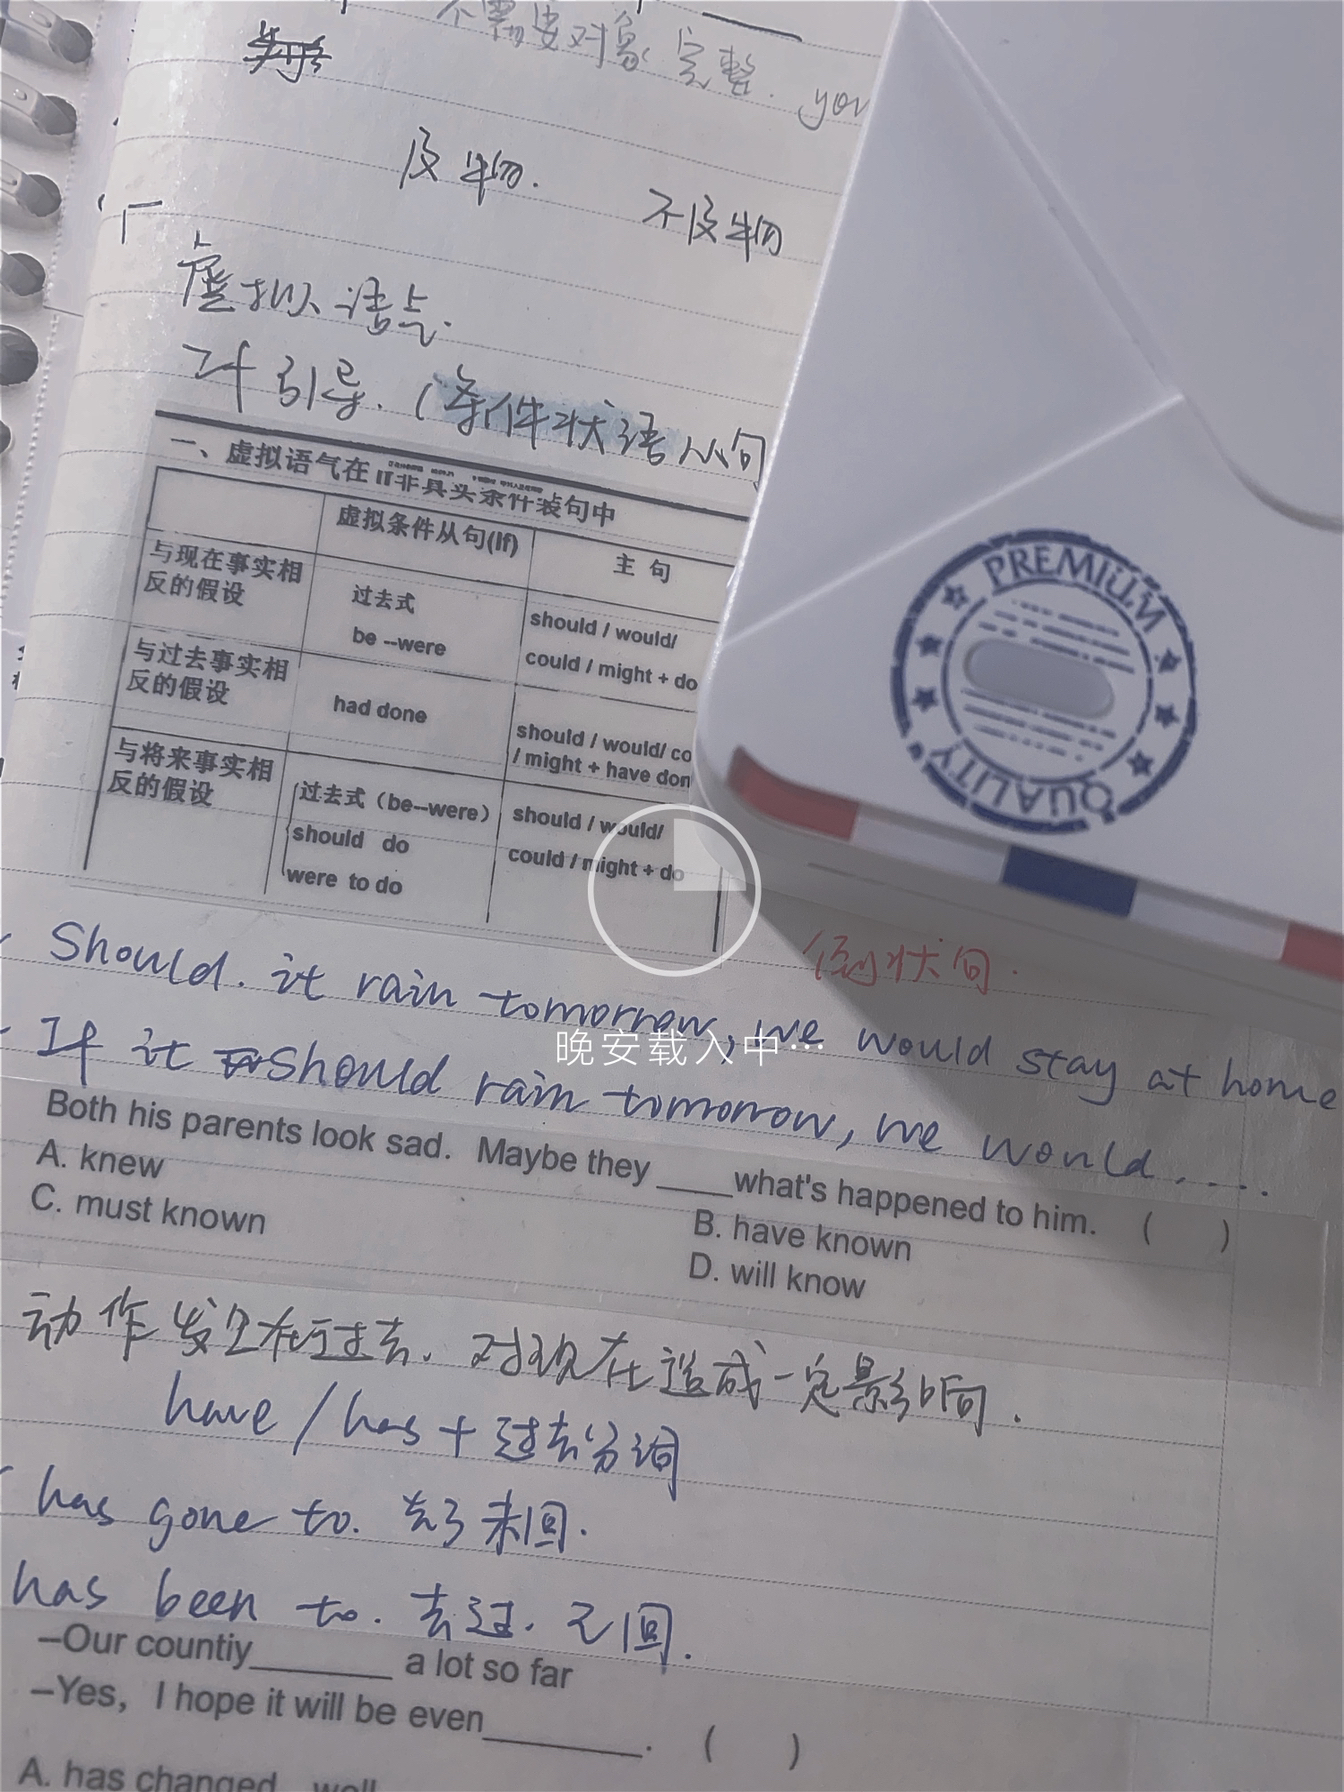 不需要对象 完整. you
及物.
不及物
虚拟语气.
If 引导. (条件状语从句
一、虚拟语气在 if非真实条件状语从句中
虚拟条件从句(If)
主 句
与现在事实相
反的假设
过去式
be --were
should / would/
could / might + do
与过去事实相
反的假设
had done
should / would/ co
/ might + have don
与将来事实相
反的假设
过去式（be--were）
should do
were to do
should / would/
could / might + do
PREMIUM
QUALITY
倒状句.
Should. it rain tomorrow, we would stay at home
晚安载入中…
If it should rain tomorrow, we would....
Both his parents look sad. Maybe they ____what's happened to him. ( )
A. knew
B. have known
C. must known
D. will know
动作发生在过去. 对现在造成一定影响.
have / has + 过去分词
has gone to. 去了未回.
has been to. 去过. 已回.
–Our countiy_______ a lot so far
–Yes, I hope it will be even________. ( )
A. has changed well